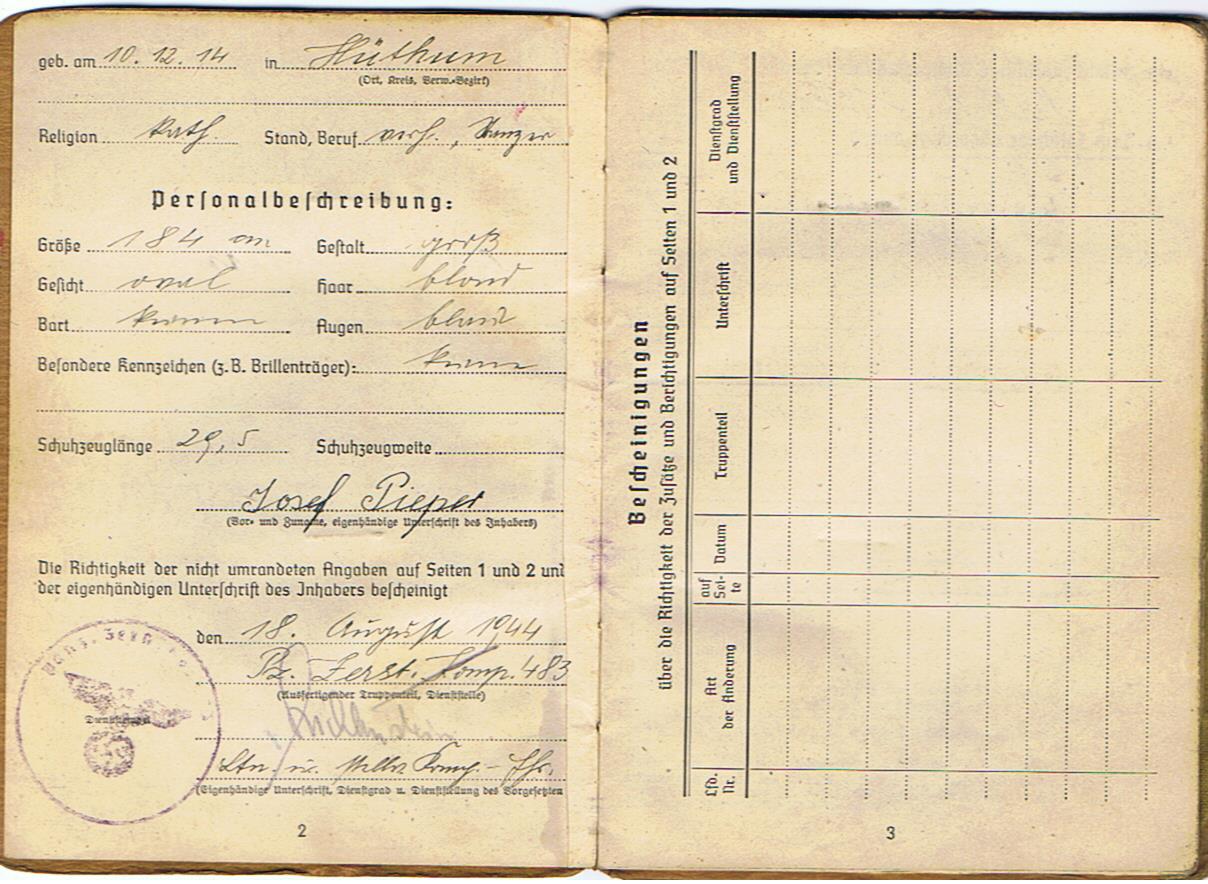 geb. am 10. 12. 14 in Hüthum
(Ort, Kreis, Verw.-Bezirk)
Religion kath. Stand, Beruf verh.,
Personalbeschreibung:
Größe 184 cm Gestalt groß
Gesicht oval Haar blond
Bart Augen
Besondere Kennzeichen (z. B. Brillenträger): keine
Schuhzeuglänge 29,5 Schuhzeugweite
Josef Pieper
(Vor- und Zuname, eigenhändige Unterschrift des Inhabers)
Die Richtigkeit der nicht umrandeten Angaben auf Seiten 1 und 2 und
der eigenhändigen Unterschrift des Inhabers bescheinigt
den 18. August 1944
Pz. Zerst. Komp. 483
(Ausfertigender Truppenteil, Dienststelle)
Dienststempel
Ltn. u. stellv. Komp.-Fhr.
(Eigenhändige Unterschrift, Dienstgrad u. Dienststellung des Vorgesetzten
2
Bescheinigungen
über die Richtigkeit der Zusätze und Berichtigungen auf Seiten 1 und 2
Lfd. Nr.
Art der Änderung
auf Seite
Datum
Truppenteil
Unterschrift
Dienstgrad und Dienststellung
3